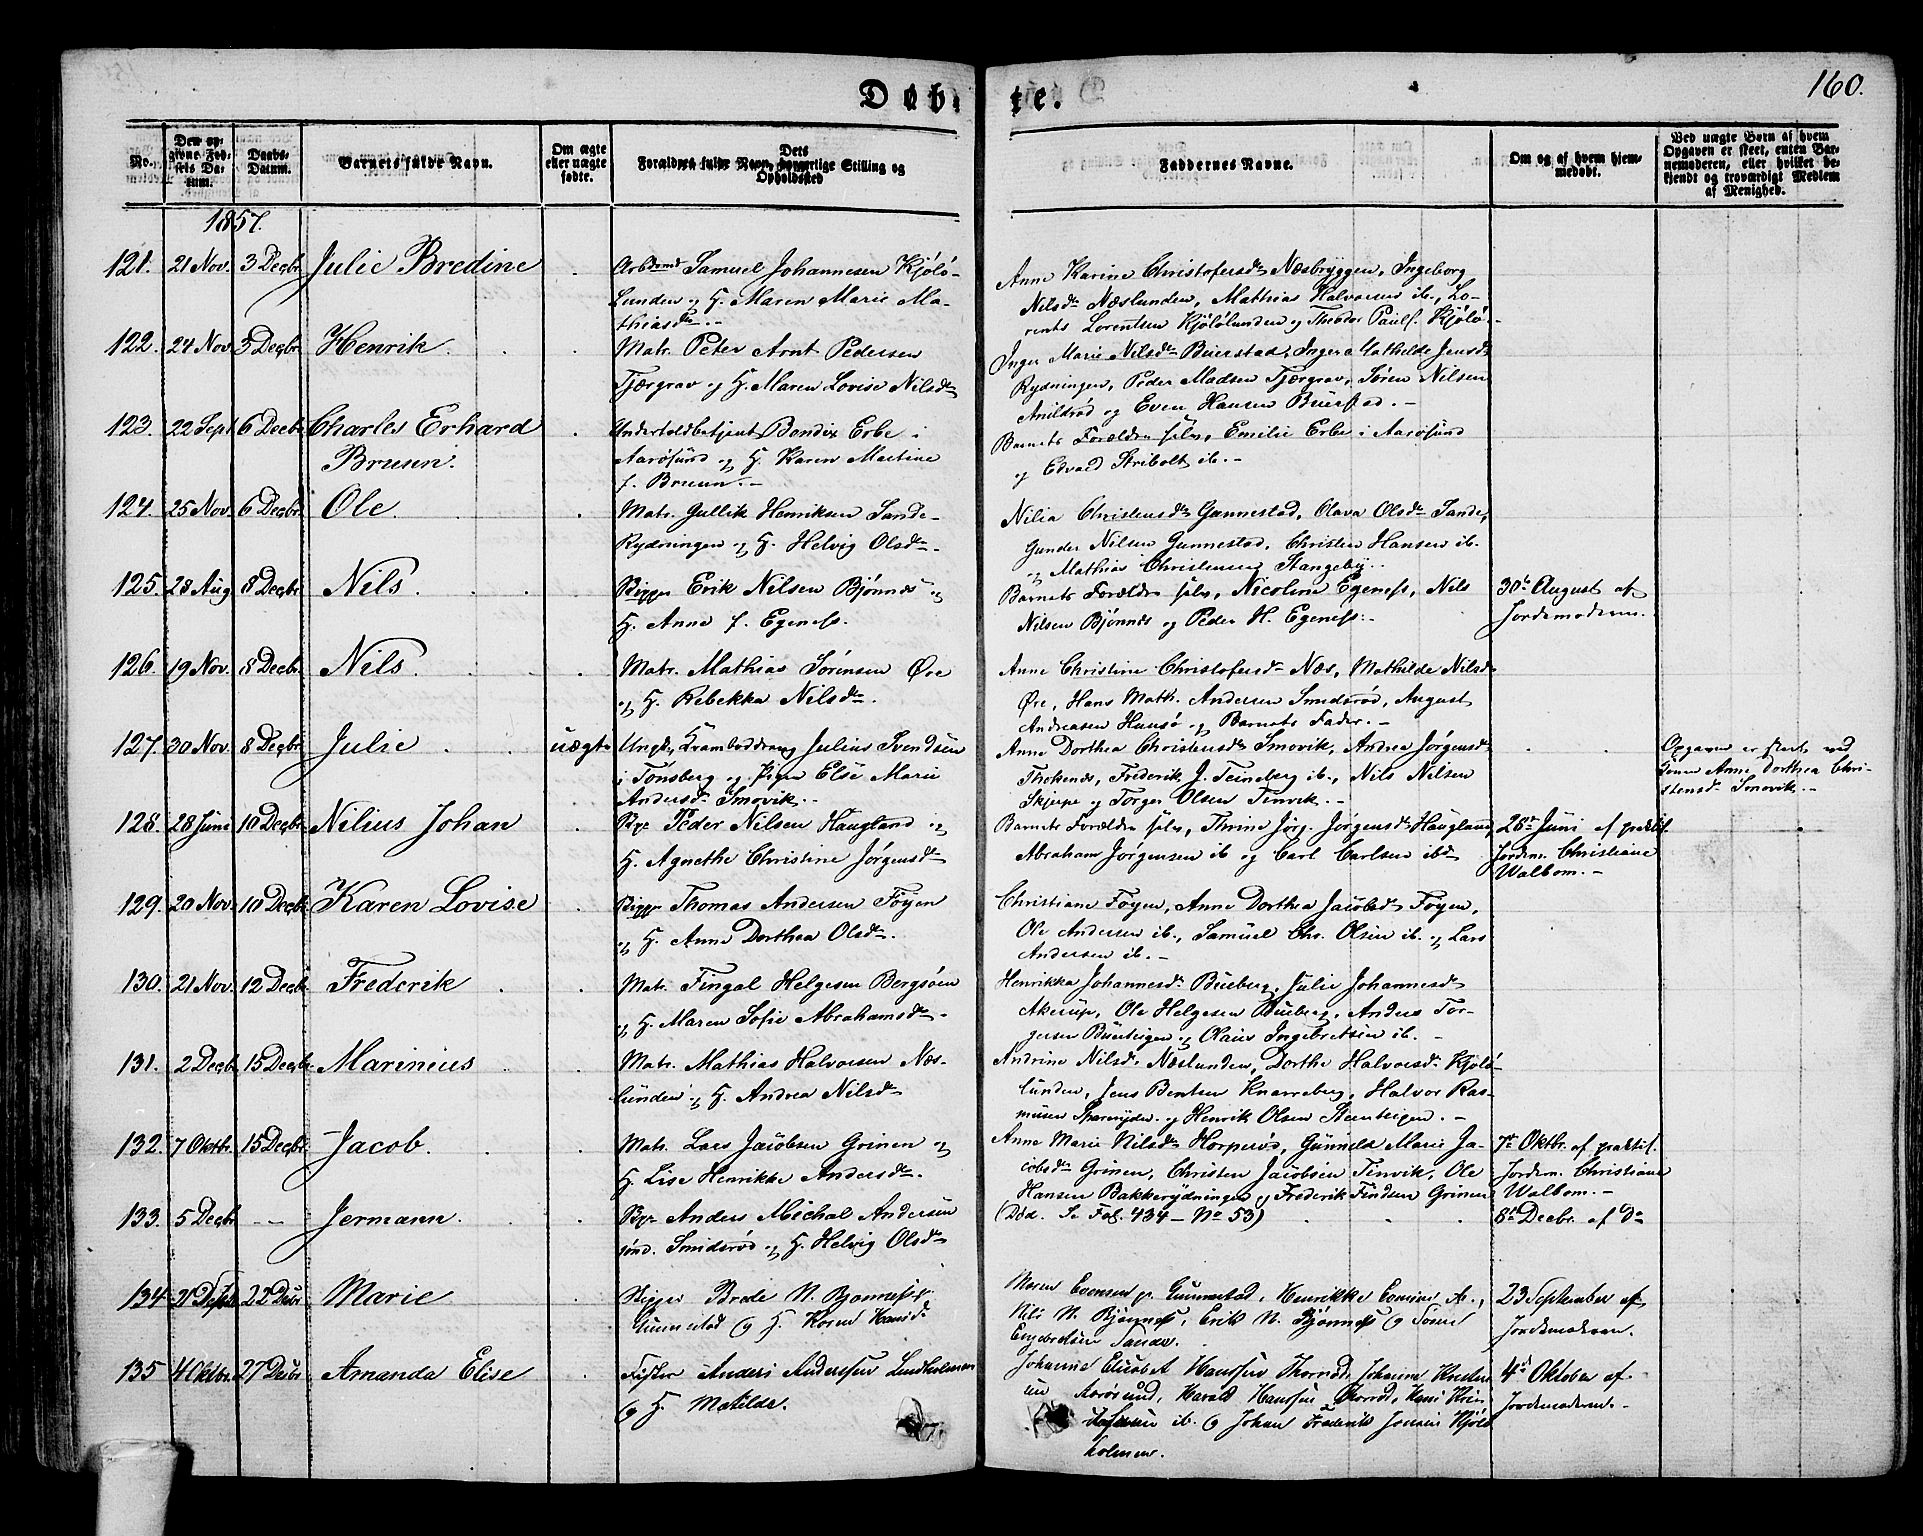 Døbte.
160.
No.
Den opgivne Fødsels Datum.
Daabs-Datum.
Barnets fulde Navn.
Om ægte eller uægte fødte.
Dets Forældres fulde Navn, borgerlige Stilling og Opholdssted
Faddernes Navne.
Om og af hvem hjemmedøbt.
Ved uægte Børn af hvem Opgaven er skeet, enten Barnemoderen, eller hvilket bekjendt og troværdigt Medlem af Menighed.
1857.
121. 21 Nov. 3 Decbr Julie Bredine
Arbmd Samuel Johannesen Kjölö-
Lunden og H. Maren Marie Ma-
thiasdr.-
Anne Karine Christofersdr Næsbryggen, Ingeborg
Nilsdr Næslunden, Mathias Halvorsen ib., Lo-
rents Lorentsen Kjölölunden og Theodor Pauls. Kjölö.
122. 24 Nov. 3 Decbr Henrik.
Matr. Peter Arnt Pedersen
Tjærgrav og H. Maren Lovise Nilsdr
Inger Marie Nilsdr Buerstad, Inger Mathilde Jensdr
Rydningen, Peder Madsen Tjærgrav, Sören Nilsen
Anildröd og Even Hansen Buerstad.-
123. 22 Sept 6 Decbr Charles Erhard
Bruun.
Underholdbetjent Bendix Erbe i
Aarösund og H. Karen Martine
f. Bruun.-
Barnets Forældre selv, Emilie Erbe i Aarösund
og Edvard Stribolt ib.-
124. 25 Nov. 6 Decbr. Ole.
Matr. Gullik Henriksen Sande-
Rydningen og H. Helvig Olsdr.
Nilia Christensdr Gunnestad, Olava Olsdr Sande,
Gunder Nilsen Gunnestad, Christen Hansen ib.
og Mathias Christensen Stangeby.
125. 28 Aug 8 Decbr. Nils
Bygger Erik Nilsen Bjönnes og
H. Anne f. Egeness.
Barnets Forældre selv, Nicoline Egeness, Nils
Nilsen Bjönnes og Peder H. Egeness.-
30te August af
Jordemoderen.
126. 19 Nov. 8 Decbr. Nils.
Matr. Mathias Sörensen Öre
og H. Rebekka Nilsdr.
Anne Christine Christofersdr Næs, Mathilde Nilsdr
Öre, Hans Math. Andersen Smidsröd, August
Andreasen Hunsö og Barnets Fader.-
127. 30 Nov. 8 Decbr Julie uægte
Ungk. Kramboddreng Julius Svendsen
i Tönsberg og Pigen Else Marie
Andersdr Smovik.-
Anne Dorthea Christensdr Smovik, Andrea Jörgensdr
Thokenæs, Frederik J. Teineberg ib., Nils Nilsen
Skjerpe og Torger Olsen Tenvik.-
Opgaven er skeet ved
Konen Anne Dorthea Chri-
stensdr Smovik.-
128. 28 Juni 10 Decbr Nilius Johan
Byg. Peder Nilsen Haugland og
H. Agnethe Christine Jörgensdr
Barnets Forældre selv, Thrine Jörg. Jörgensdr Haugland,
Abraham Jörgensen ib og Carl Carlsen ibd
28de Juni af praktis.
Jordem. Christiane
Walbom.-
129. 20 Nov. 10 Decbr Karen Lovise
Bygger Thomas Andersen Föyen
og H. Anne Dorthea Olsdr.
Christiane Föyen, Anne Dorthea Jacobsdr Föyen,
Ole Andersen ib., Samuel Chr. Olsen ib. og Lars
Andersen ib.-
130. 21 Nov. 12 Decbr. Frederik
Matr. Fingal Helgesen Bergsöen
og H. Maren Sofie Abrahamsdr.
Henrikka Johannesdr. Bueberg, Julie Johannesdr
Akerup, Ole Helgesen Bueberg, Anders Tor-
gersen Buerteigen og Olaus Ingebretsen ib.-
131. 2 Decbr. 15 Decbr. Marinius
Matr. Mathias Halvorsen Næs-
lunden og H. Andrea Nilsdr
Andrine Nilsdr. Næslunden, Dorthe Halvorsdr. Kjölö-
lunden, Jens Bentsen Knarreberg, Halvor Ras-
mussen og Henrik Olsen Stenteigen.-
132. 7 Oktbr. 15 Decbr. Jacob.
Matr. Lars Jacobsen Grinen og
H. Lise Henrikke Andersdr.
Anne Marie Nilsdr Horperöd, Gunnild Marie Ja-
cobsdr Grinen, Christen Jacobsen Tenvik, Ole
Hansen Bakkerydningen og Frederik Findsen Grinen
7de Oktbr. af praktis.
Jordem. Christiane
Walbom.-
133. 5 Decbr -- Jermann.
Byg. Anders Michal Andersen
Smidsröd og H. Helvig Olsdr
(Död. Se Fol. 434 - No 53)
8de Decbr. af do
134 21 Septbr 22 Decbr Marie
Bygger Brede N. Bjönness
Gunnestad og H. Karen Hansdr
Maren Evensen p. Gunnestad, Henrikke ib.,
Nils N. Bjönness, Erik N. Bjönness og
Engebretsen Sande.
23 September af
Jordemoderen.
135 4 Oktbr. 27 Decbr Amanda Elise
Fisker Anders Andersen Lindholmen
og H. Matilde.
Johanne Elisabet Hanssen Thorröd, Johanne
Aarösund, Harald Hanssen Thorröd, Hans
ib. og Johan Frederik Jensen Kjöl-
holmen.
4de Oktober af
Jordemoderen.-